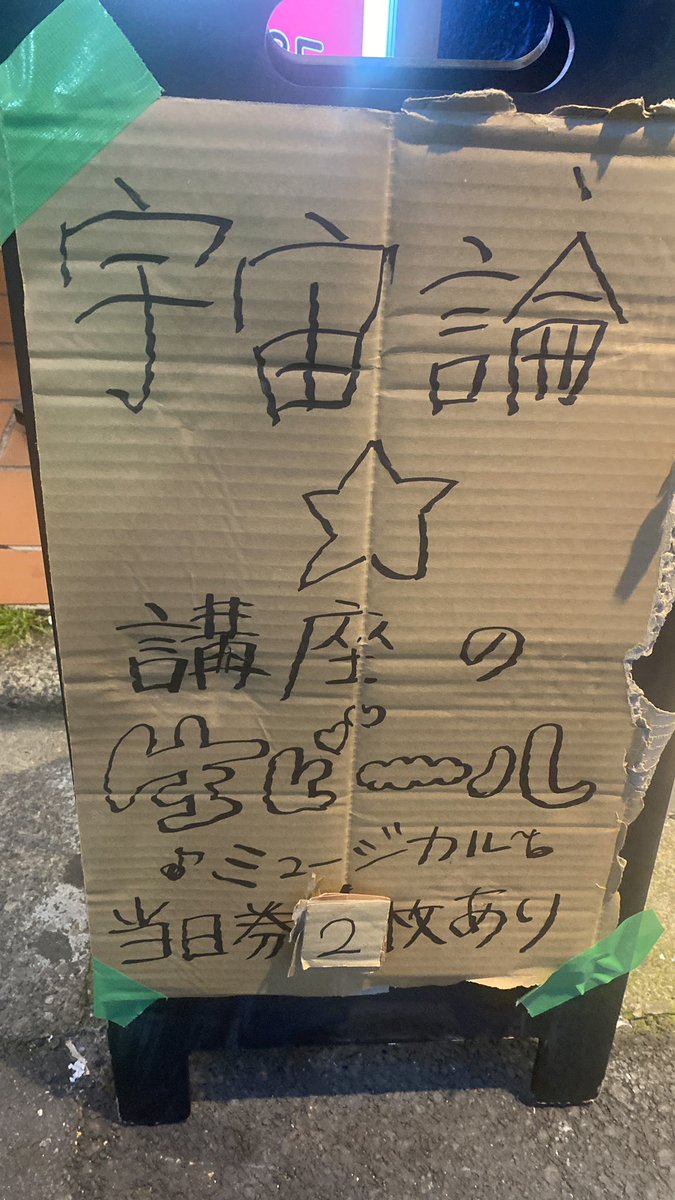 宇宙論
☆
講座の
生ビール
♪ミュージカル♨
当日券2枚あり